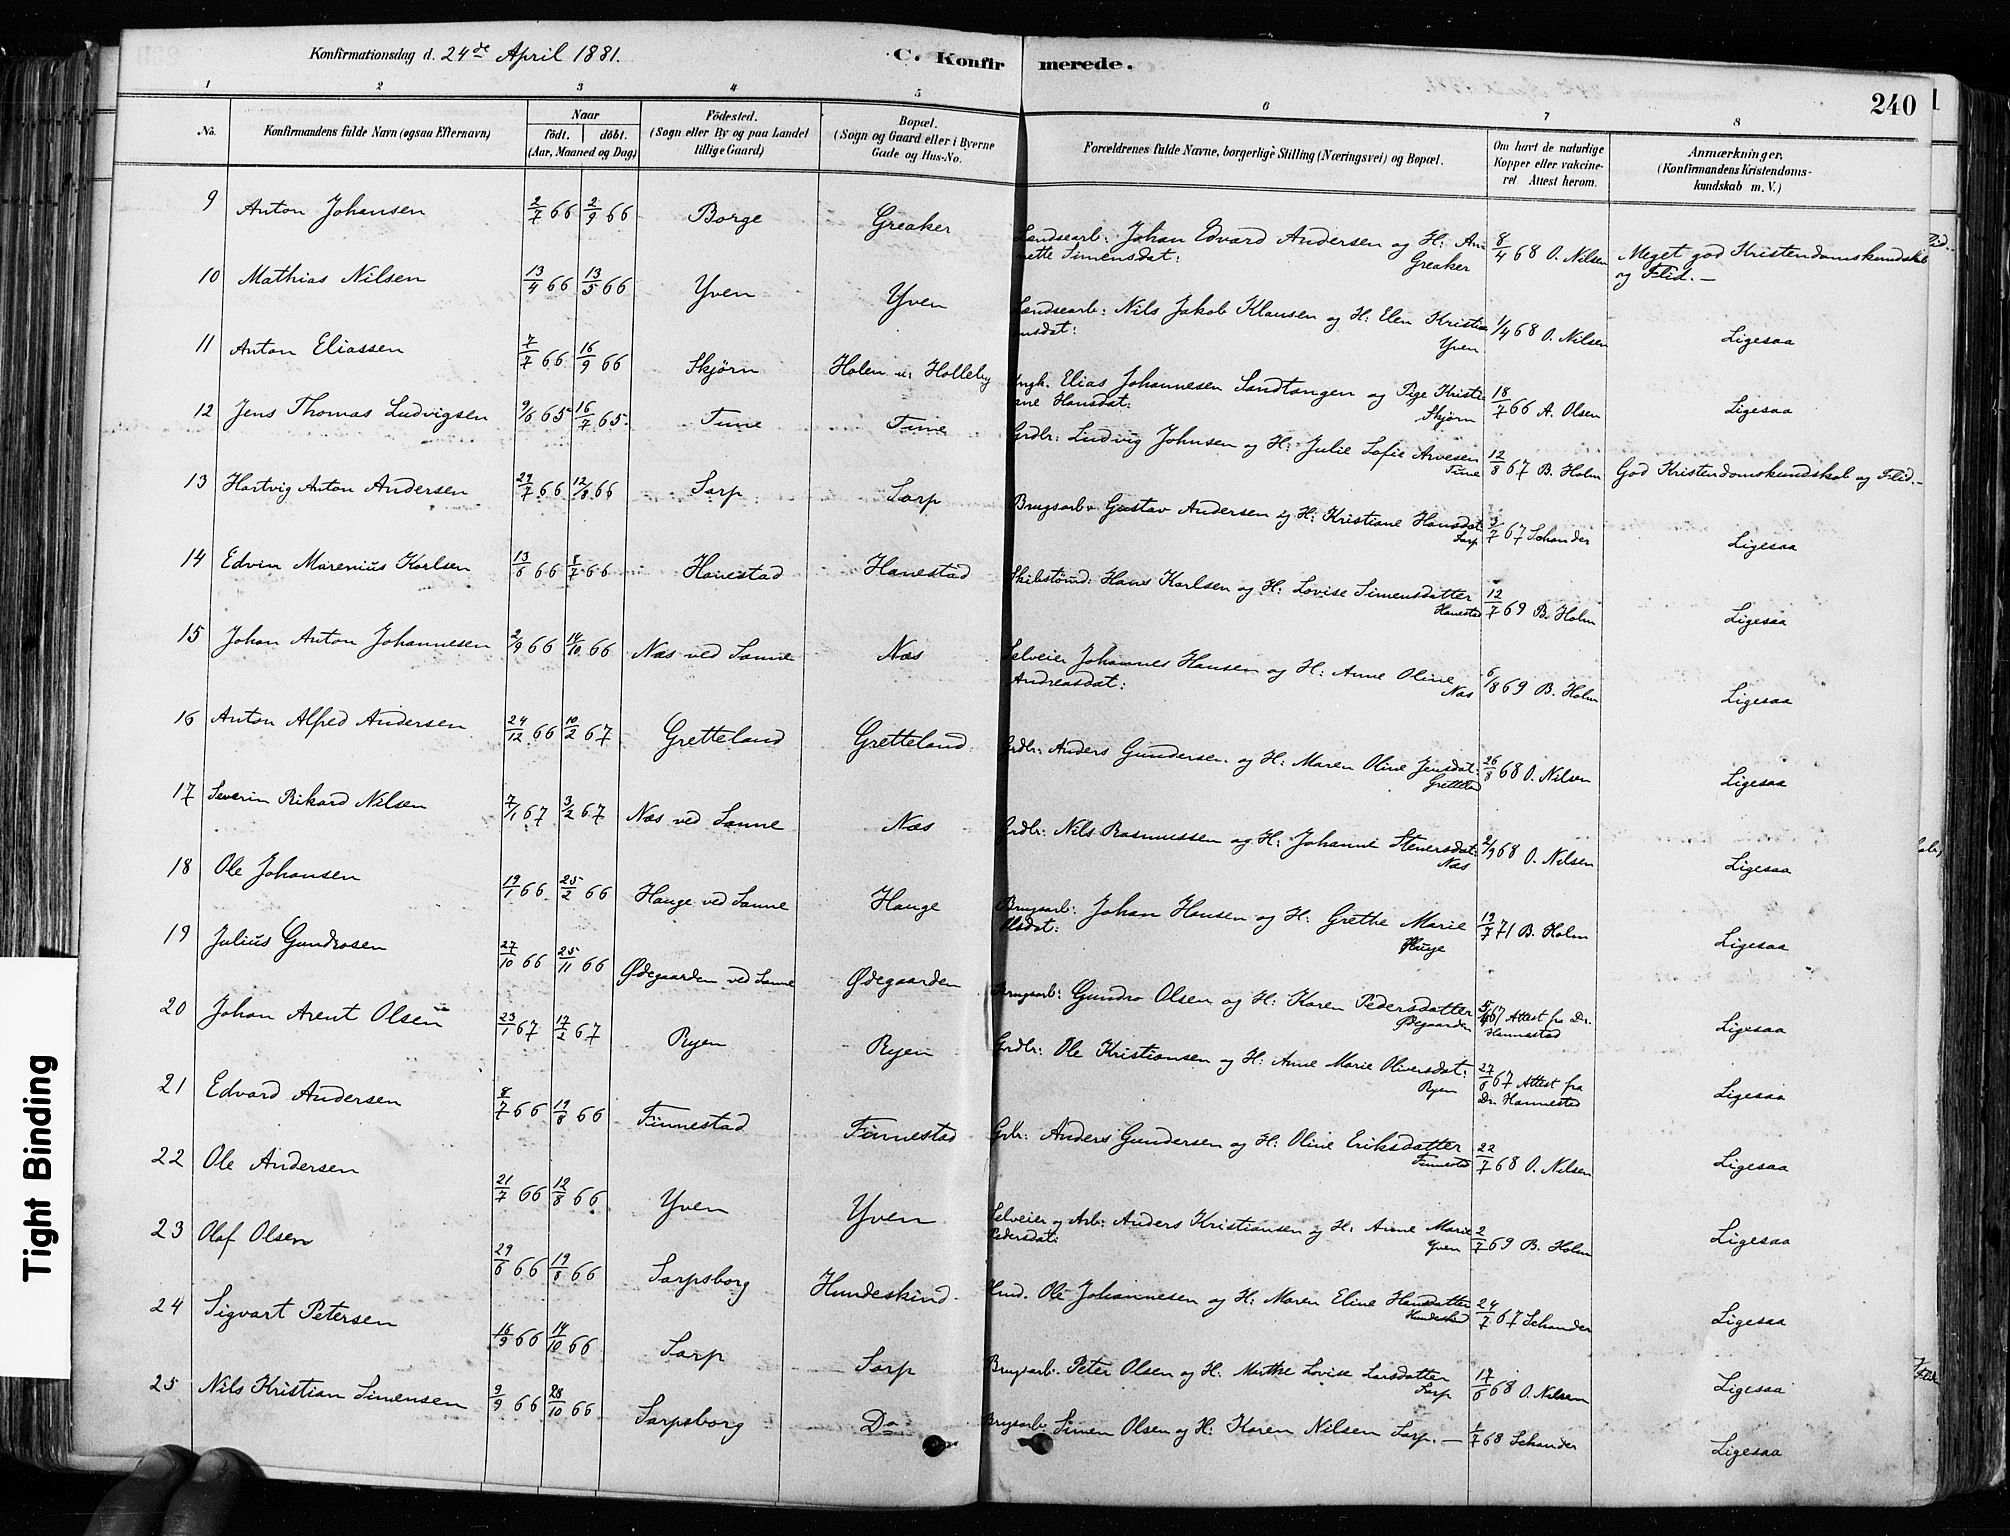 Konfirmationsdag d. 24de April 1881.
C. Konfirmerede.
240
1 2 3 4 5 6 7 8
No.
Konfirmandens fulde Navn (ogsaa Efternavn)
Naar
födt. döbt.
(Aar, Maaned og Dag)
Födested.
(Sogn eller By og paa Landet
tillige Gaard)
Bopæl.
(Sogn og Gaard eller i Byerne
Gade og Hus-No.
Forældrenes fulde Navne, borgerlige Stilling (Næringsvei) og Bopæl.
Om havt de naturlige
Kopper eller vakcine-
ret Attest herom.
Anmærkninger,
(Konfirmandens Kristendoms-
kundskab m. V.)
9 Anton Johansen 2/7 66 2/9 66 Borge Greaker Landsearb: Johan Edvard Andersen og H: An-
nette Simensdat: Greaker 8/4 68 O. Nilsen Meget god Kristendomskundskab
og Flid. —
10 Mathias Nilsen 13/4 66 13/5 66 Yven Yven Landsearb: Nils Jakob Klausen og H: Elen Kristia
nsdat: Yven 1/4 68 O. Nilsen Ligesaa
11 Anton Eliassen 7/7 66 16/9 66 Skjørn Holen u: Holleby Ungk. Elias Johannesen Sandtangen og Pige Kristi-
ane Hansdat: Skjørn 18/7 66 A. Olsen Ligesaa
12 Jens Thomas Ludvigsen 9/6 65 16/7 65 Tune Tune Grdbr: Ludvig Johnsen og H: Julie Sofie Arvesen
Tune 12/8 67 B. Holm God Kristendomskundskab og Flid. —
13 Hartvig Anton Andersen 29/7 66 12/8 66 Sarp Sarp Brugsarb: Gustav Andersen og H: Kristiane Hansdat
Sarp 3/7 67 Schander Ligesaa
14 Edvin Marenius Karlsen 13/6 66 8/7 66 Hanestad Hanestad Skibstømd: Hans Karlsen og H: Lovise Simensdatter
Hanestad 12/7 69 B. Holm Ligesaa
15 Johan Anton Johannesen 2/9 66 14/10 66 Næs ved Sanne Næs Selveier Johannes Hansen og H: Anne Oline
Andreasdat: Næs 6/8 69 B. Holm Ligesaa
16 Anton Alfred Andersen 24/12 66 10/2 67 Gretteland Gretteland Grdbr: Anders Gundersen og H: Maren Oline Jensdat:
26/8 68 O. Nilsen Ligesaa
17 Severin Rikard Nilsen 7/1 67 3/2 67 Næs ved Sanne Næs Grdbr: Nils Rasmussen og H: Johanne Stenersdat:
Næs 2/9 68 O. Nilsen Ligesaa
18 Ole Johansen 19/1 66 25/2 66 Hauge ved Sanne Hauge Brugsarb: Johan Hansen og H: Grethe Marie
Olsdat: Hauge 19/7 71 B. Holm Ligesaa
19 Julius Gundrosen 27/10 66 25/11 66 Ødegaarden ved Sanne Ødegaarden Brugsarb: Gundro Olsen og H: Karen Pedersdatter
Ødegaarden 67 Attest fra Dr.
Hannestad Ligesaa
20 Johan Arent Olsen 23/1 67 17/2 67 Ryen Ryen Grdbr: Ole Kristiansen og H: Anne Marie Oliversdat:
Ryen 27/6 67 Attest fra
Dr. Hannestad Ligesaa
21 Edvard Andersen 8/7 66 19/8 66 Finnestad Finnestad Grbr: Anders Gundersen og H: Oline Eriksdatter
Finnestad 22/7 68 O. Nilsen Ligesaa
22 Ole Andersen 21/7 66 12/8 66 Yven Yven Selveier og Arb: Anders Kristiansen og H: Anne Marie
Pedersdat: Yven 2/7 69 B. Holm Ligesaa
23 Olaf Olsen 29/6 66 19/8 66 Sarpsborg Hundeskind Ole Johannesen og H: Maren Eline Hansdatter
24/7 67 Schander Ligesaa
24 Sigvart Petersen 16/9 66 14/10 66 Sarp Sarp Brugsarb: Peter Olsen og H: Marthe Lovise Larsdatter
Sarp 17/6 68 O. Nilsen Ligesaa
25 Nils Kristian Simensen 9/9 66 28/10 66 Sarpsborg Do Brugsarb: Simen Olsen og H: Karen Nilsen Sarp. — 1/7 68 Schander Ligesaa
Tight Binding